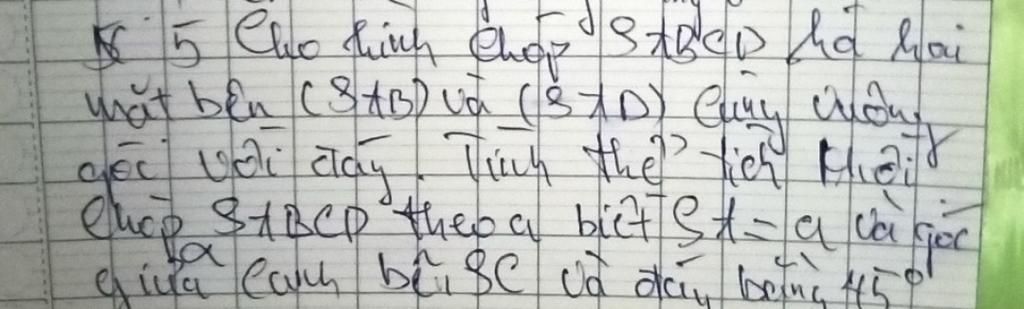 5 Cho hình chóp SABCD có hai
mặt bên (SAB) và (SAD) cùng vuông
góc với đáy. Tính thể tích khối
chóp SABCD theo a biết SA = a và góc
giữa cạnh bên SC và đáy bằng 45°